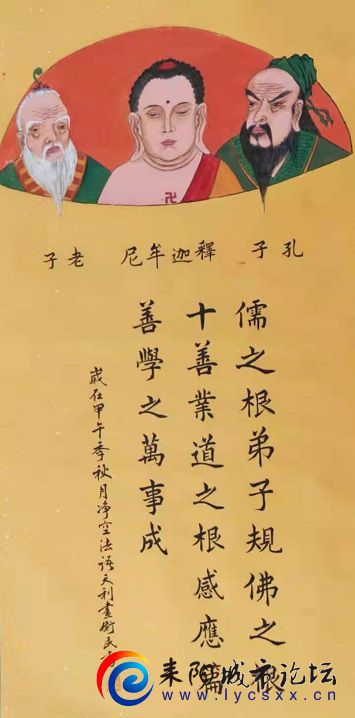 孔子
釋迦牟尼
老子
儒之根弟子規佛之根
十善業道之根感應篇
善學之萬事成
歲在甲午季秋月净空法語
耒阳城市论坛
www.lycsxx.cn